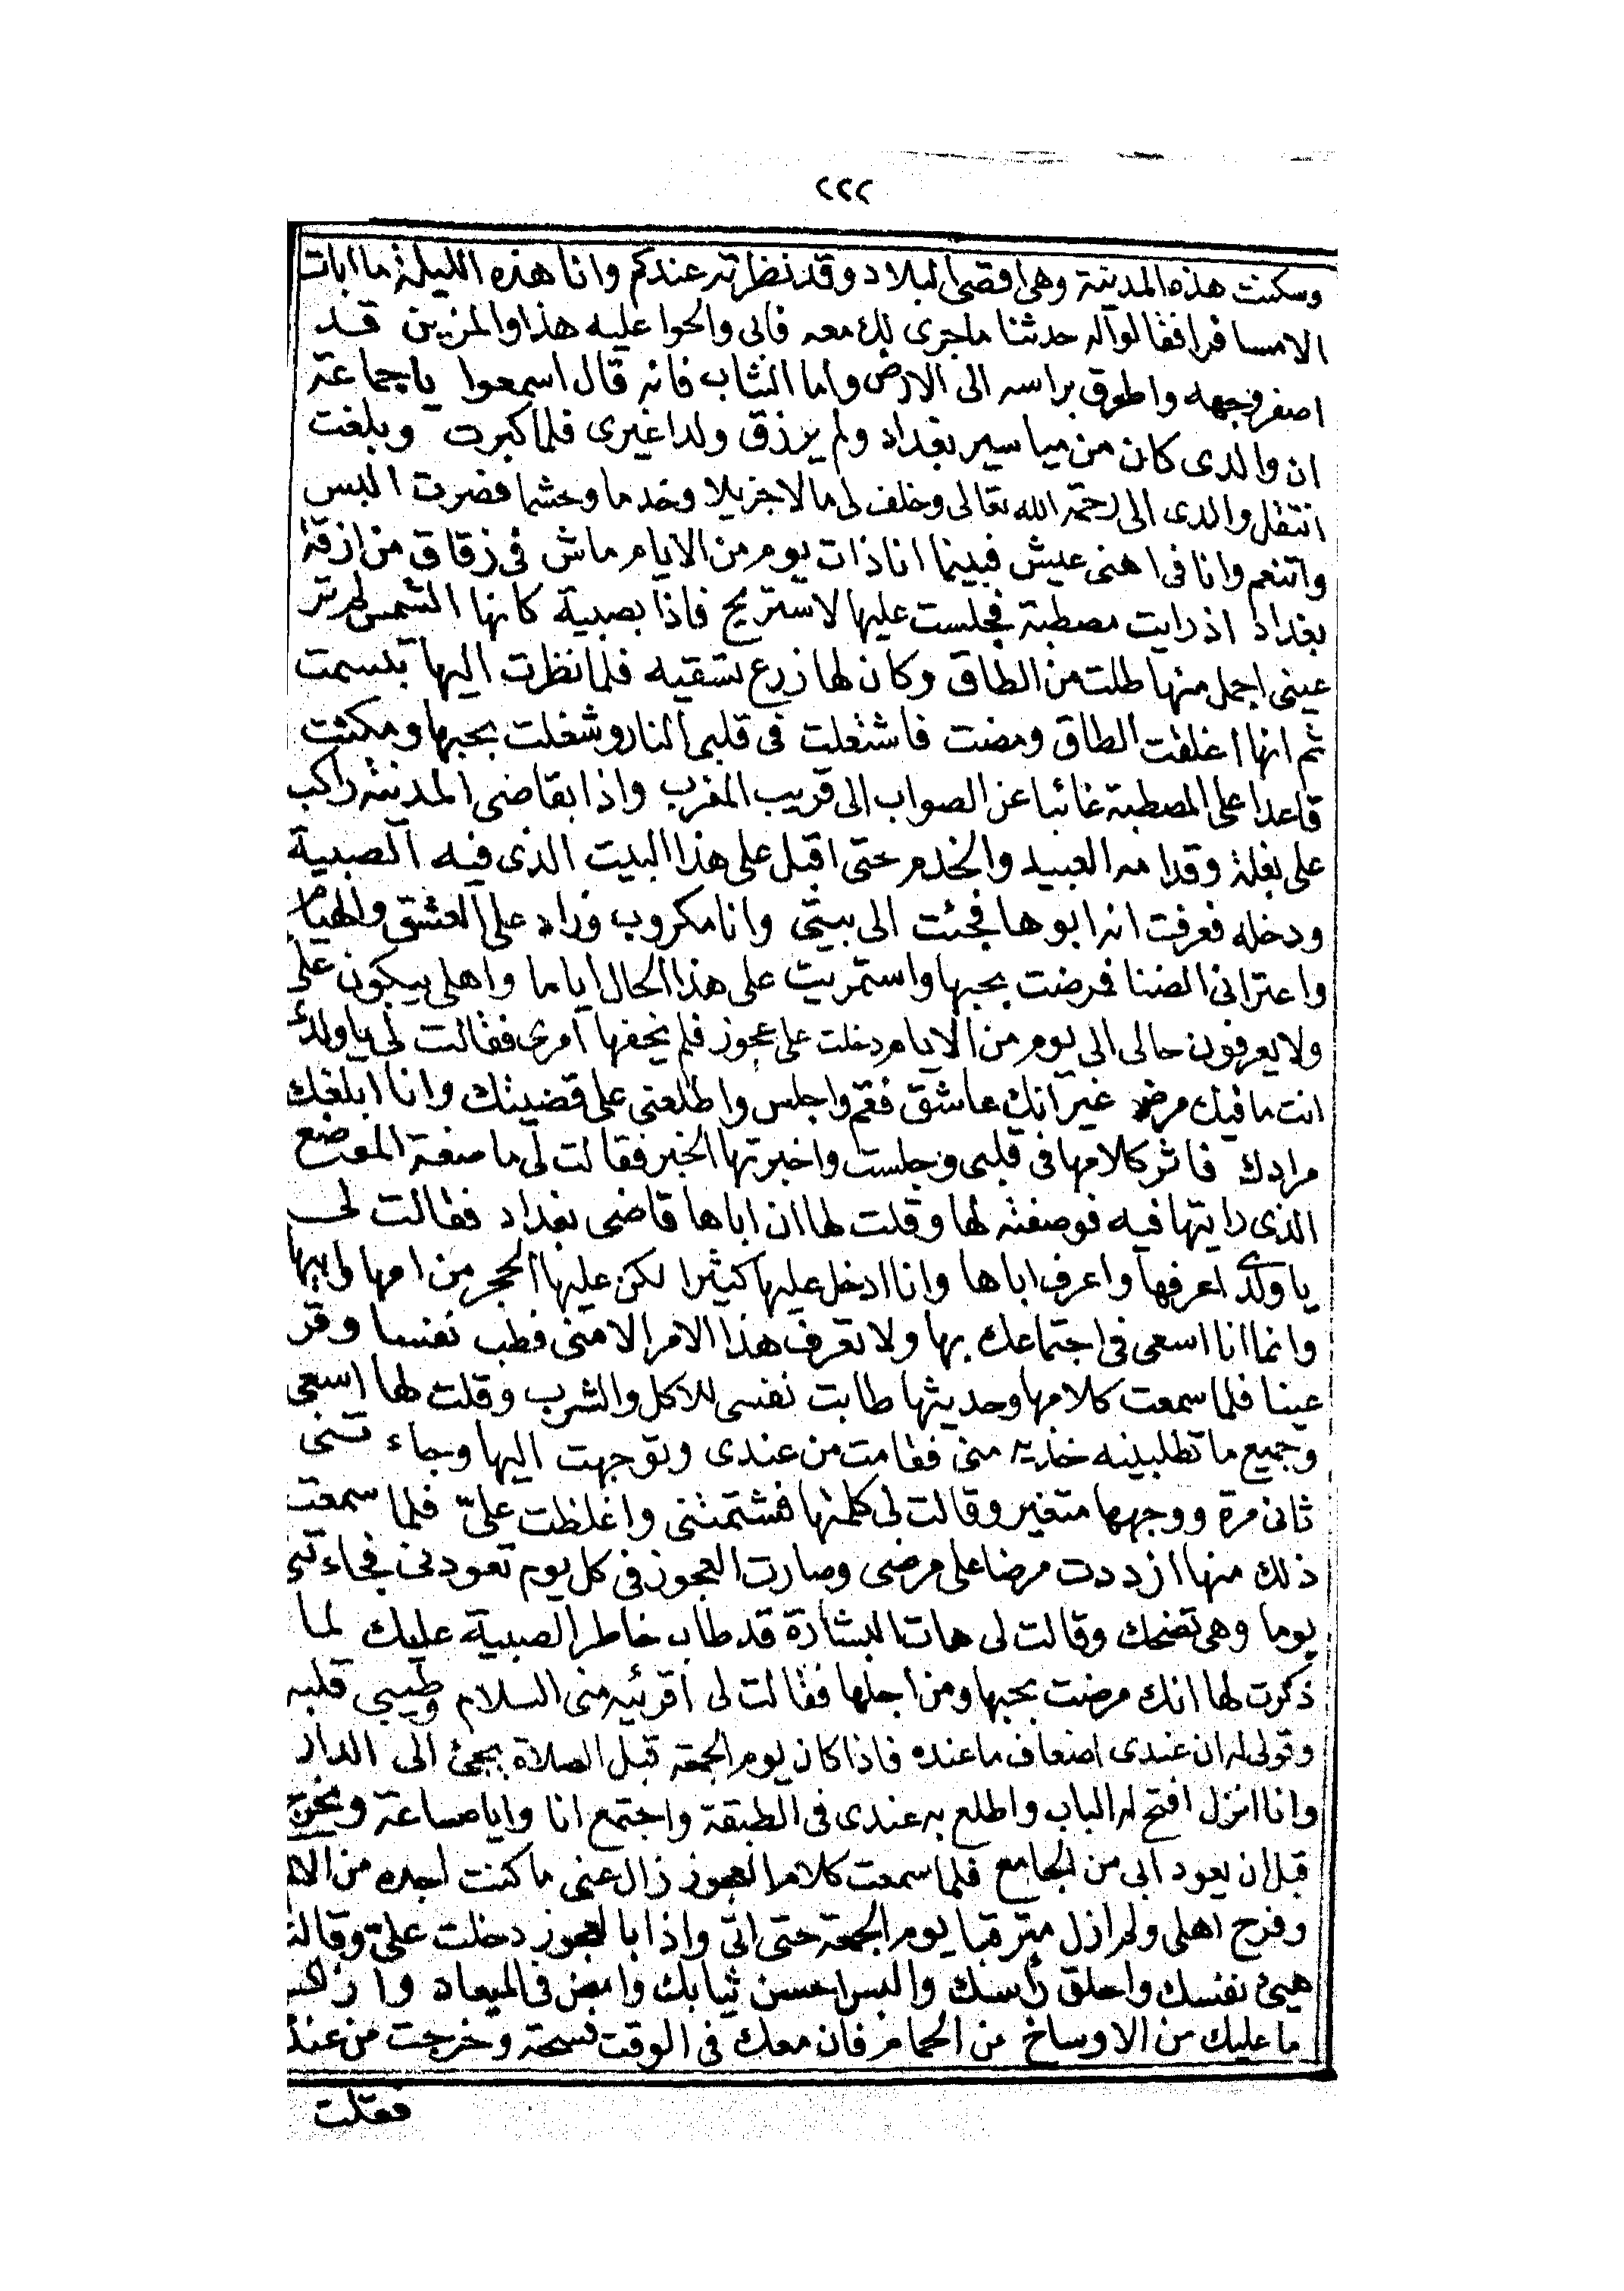 ٢٢٢
وسكنت هذه المدينة وهى اقصى البلاد وقد نظرته عندكم وانا هذه الليلة ما ابات
الا مسافرا فقالوا له حدثنا ماجرى لك معه فابى والحوا عليه هذا والمزين قد
اصفر وجهه واطرق براسه الى الارض واما الشاب فانه قال اسمعوا يا جماعة
ان والدى كان من مياسير بغداد ولم يرزق ولدا غيرى فلما كبرت وبلغت
انتقل والدى الى رحمة الله تعالى وخلف لى مالا جزيلا وخدما وحشما فصرت البس
واتنعم وانا فى اهنى عيش فبينما انا ذات يوم من الايام ماش فى زقاق من ازقة
بغداد اذ رايت مصطبة فجلست عليها لاستريح فاذا بصبية كانها الشمس لم تر
عينى اجمل منها طلت من الطاق وكان لها زرع تسقيه فلما نظرت اليها تبسمت
ثم انها اغلقت الطاق ومضت فاشتعلت فى قلبى النار وشغلت بحبها ومكثت
قاعدا على المصطبة غائبا عن الصواب الى قريب المغرب واذا بقاضى المدينة راكب
على بغلة وقدامه العبيد والخدم حتى اقبل على هذا البيت الذى فيه الصبية
ودخله فعرفت انه ابوها فجئت الى بيتى وانا مكروب وزاد على العشق والهيام
واعترانى الضنا فمرضت بحبها واستمريت على هذا الحال اياما واهلى يبكون على
ولا يعرفون حالى الى يوم من الايام دخلت على عجوز فلم يخفها امرى فقالت لى يا ولدى
انت ما فيك مرض غير انك عاشق فقم واجلس واطلعنى على قضيتك وانا ابلغك
مرادك فاثر كلامها فى قلبى وجلست واخبرتها الخبر فقالت لى ما صفة الموضع
الذى رايتها فيه فوصفته لها وقلت لها ان اباها قاضى بغداد فقالت لى
يا ولدى اعرفها واعرف اباها وانا ادخل عليها كثيرا لكن عليها الحجر من امها وابيها
وانما انا اسعى فى اجتماعك بها ولا تعرف هذا الامر الا منى فطب نفسا وقر
عينا فلما سمعت كلامها وحديثها طابت نفسى للاكل والشرب وقلت لها اسعى
وجميع ما تطلبينه خذيه منى فقامت من عندى وتوجهت اليها وجاءتنى
ثانى مرة ووجهها متغير وقالت لى كلمتها فشتمتنى واغلظت علىّ فلما سمعت
ذلك منها ازددت مرضا على مرضى وصارت العجوز فى كل يوم تعودنى فجاءتنى
يوما وهى تضحك وقالت لى هات البشارة قد طاب خاطر الصبية عليك لما
ذكرت لها انك مرضت بحبها ومن اجلها فقالت لى اقرئيه منى السلام وطيبى قلبه
وقولى له ان عندى اضعاف ما عنده فاذا كان يوم الجمعة قبل الصلاة يجئ الى الدار
وانا انزل افتح له الباب واطلع به عندى فى الطبقة واجتمع انا واياه ساعة ويخرج
قبل ان يعود ابى من الجامع فلما سمعت كلام العجوز زال عنى ما كنت اجده من الالم
وفرح اهلى ولم ازل مترقبا يوم الجمعة حتى اتى واذا بالعجوز دخلت علىّ وقالت
هيئ نفسك واحلق رأسك والبس احسن ثيابك وامض فى الميعاد وازل
ما عليك من الاوساخ من الحمام فان معك فى الوقت فسحة وخرجت من عند
فقلت